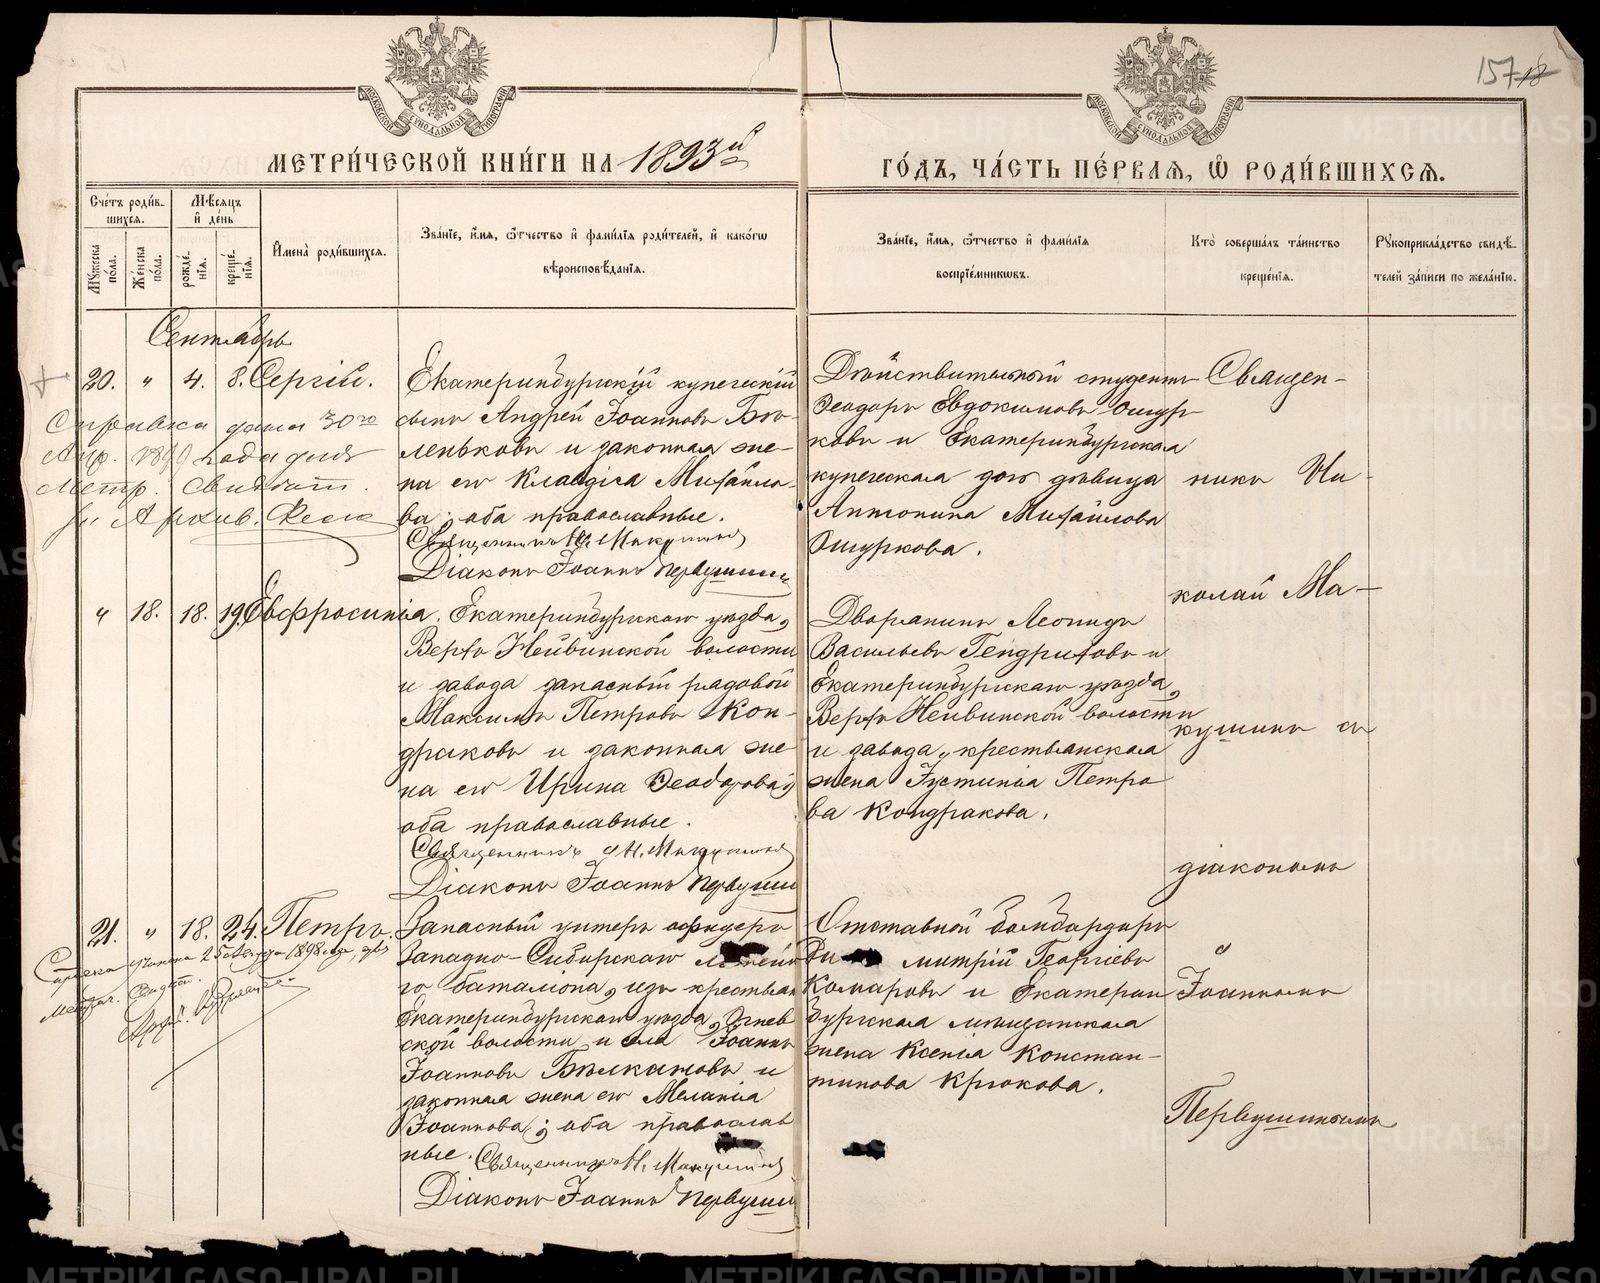 157 18
МОСКОВСКОЙ СѴНОДАЛЬНОЙ ТИПОГРАФІИ
МОСКОВСКОЙ СѴНОДАЛЬНОЙ ТИПОГРАФІИ
МЕТРИ́ЧЕСКОЙ КНИ́ГИ НА 1893й
ГО́ДЪ, ЧА́СТЬ ПЕ́РВАѦ, Ѡ҆ РОДИ́ВШИХСѦ.
Сче́тъ роди́в-
шихсѧ.
Мꙋ́жеска по́ла.
Же́нска по́ла.
Мѣ́сѧцъ
и҆ де́нь
рожде́-
нїѧ.
креще́-
нїѧ.
И҆мена̀ роди́вшихсѧ.
Зва́нїе, и҆́мѧ, ѻ҆́тчество и҆ фами́лїѧ роди́телей, и҆ како́гѡ
вѣроисповѣ́данїѧ.
Зва́нїе, и҆́мѧ, ѻ҆́тчество и҆ фами́лїѧ
воспрїе́мникѡвъ.
Кто̀ соверша́лъ та́инство
креще́нїѧ.
Рꙋкоприкла́дство свидѣ́-
телей за́писи по жела́нїю.
Сентябрь
20. " 4. 8. Сергій.
Екатеринбургскій купеческій
сынъ Андрей Іоанновъ Бѣ-
леньковъ и законная же-
на его Клавдія Михайло-
ва; оба православные.
Священникъ Н. Макушинъ
Діаконъ Іоаннъ Первушинъ
Дѣйствительный студентъ
Ѳеодоръ Евдокимовъ Ошур
ковъ и Екатеринбургская
купеческая дочь дѣвица
Антонина Михайлова
Ошуркова.
Справка дана 30го
Апр. года для
Метр. Свидѣт.
Архив.
" 18. 18. 19. Евфросинія.
Екатеринбургскаго уѣзда,
Верхъ Нейвинской волости
и завода запасный рядовой
Максимъ Петровъ Кон-
драковъ и законная же
на его Ирина Ѳеодорова;
оба православные.
Священникъ Н. Макушинъ
Діаконъ Іоаннъ Первушин
Дворянинъ Леонидъ
Васильевъ Гендриховъ и
Екатеринбургскаго уѣзда,
Верхъ Нейвинской волости
и завода, крестьянская
жена Іустинія Петро
ва Кондракова.
21. " 18. 24. Петръ.
Запасный унтеръ офицеръ
Западно-Сибирскаго
го баталіона, изъ крестьян
Екатеринбургскаго уѣзда, Огнев
ской волости и села Іоаннъ
Іоанновъ Бѣлкатовъ и
законная жена его Меланія
Іоаннова; оба православ
ные. Священникъ Н. Макушинъ
Діаконъ Іоаннъ Первушин
Отставной бомбардиръ
митрій Георгіевъ
Комаровъ и Екатерин
бургская мѣщанская
жена Ксенія Констан-
тинова Крюкова.
1898 года, для
Метрич. Свидѣт.
Священ-
никъ Ни-
колай Ма-
кушинъ съ
діакономъ
Іоанномъ
Первушинымъ
METRIKI.GASO-URAL.RU